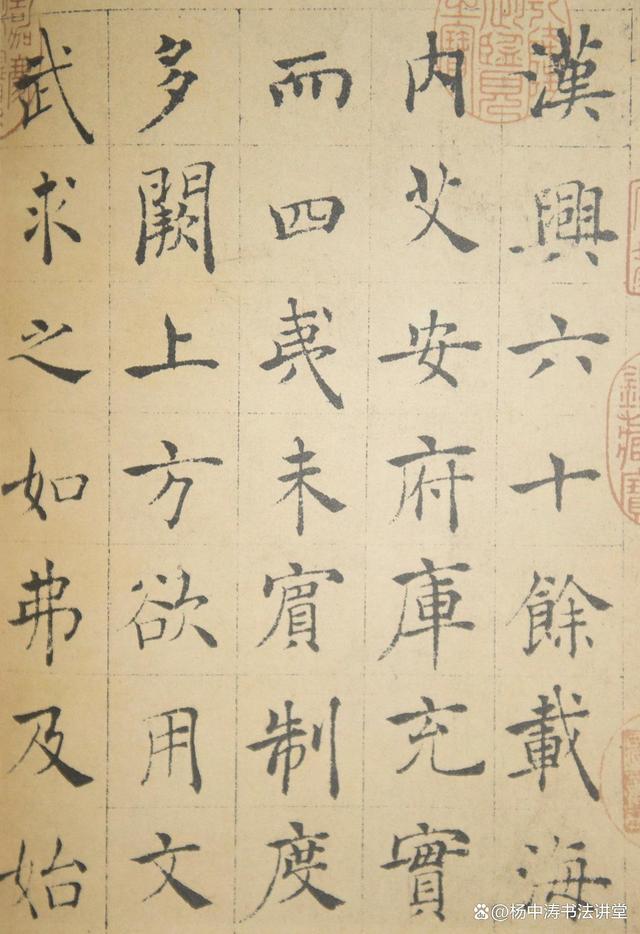 漢興六十餘載海
内艾安府庫充實
而四夷未賓制度
多闕上方欲用文
武求之如弗及始
@杨中涛书法讲堂